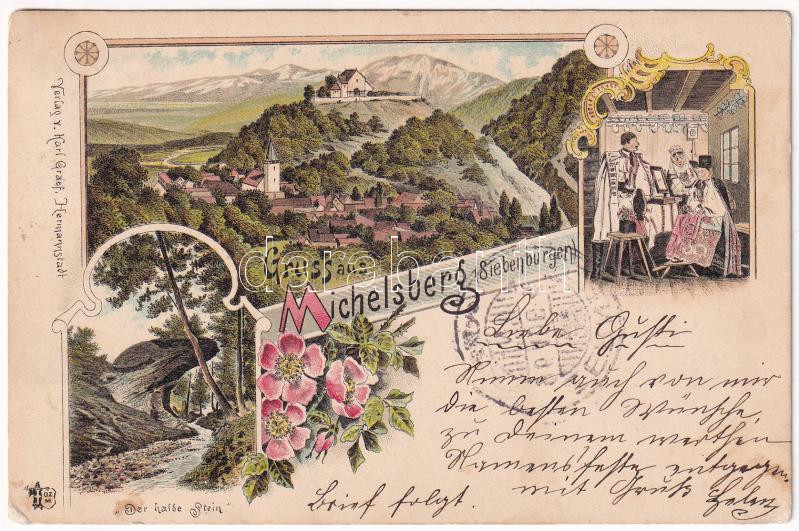 Verlag v. Karl Graef, Hermannstadt
Gruss aus
Michelsberg (Siebenbürgen)
Liebe Gusti
Nimm auch von mir
die besten Wünsche,
zu Deinem werthen
Namensfeste entgegen
mit Gruß Helen
Brief folgt.
„Der halbe Stein“